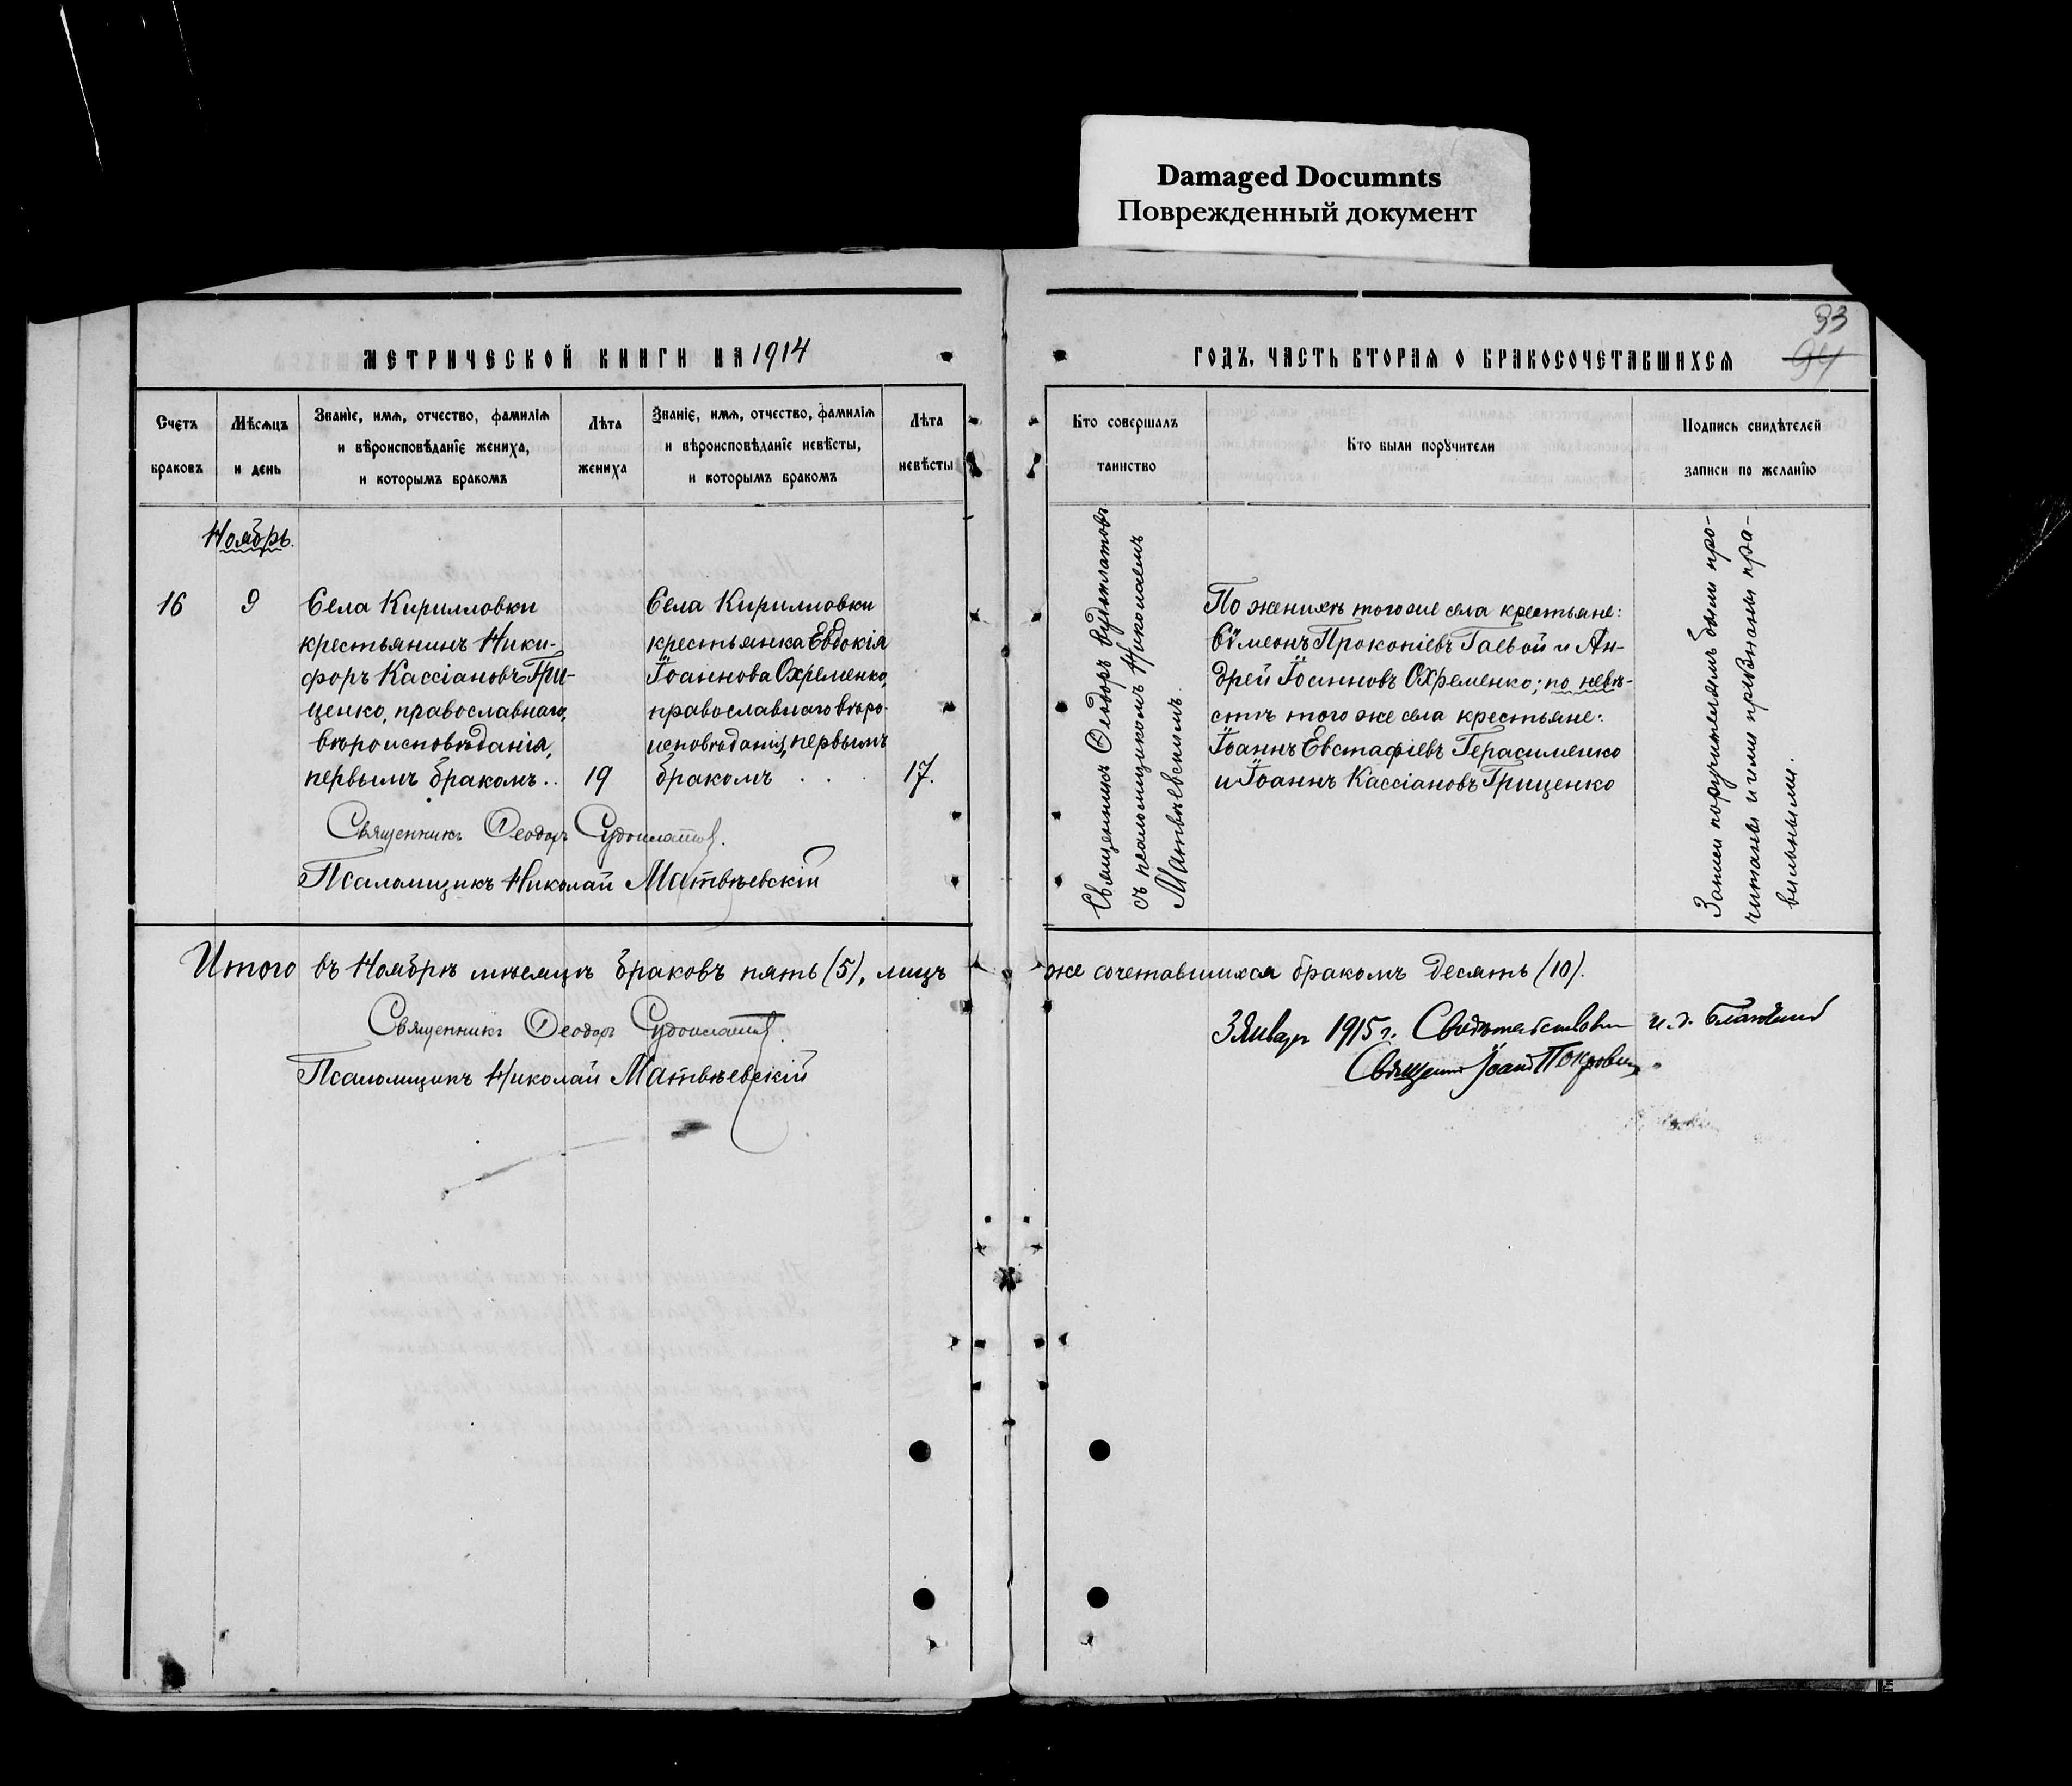 Damaged Documnts
Поврежденный документ
33
94
МЕТРИЧЕСКОЙ КНИГИ НА 1914
ГОДЪ, ЧАСТЬ ВТОРАЯ О БРАКОСОЧЕТАВШИХСЯ
Счетъ
браковъ
Мѣсяцъ
и день
Званіе, имя, отчество, фамилія
и вѣроисповѣданіе жениха,
и которымъ бракомъ
Лѣта
жениха
Званіе, имя, отчество, фамилія
и вѣроисповѣданіе невѣсты,
и которымъ бракомъ
Лѣта
невѣсты
Кто совершалъ
таинство
Кто были поручители
Подпись свидѣтелей
записи по желанію
Ноябрь.
16
9
Села Кирилловки
крестьянинъ Ники-
форъ Кассіановъ Гри-
ценко, православнаго
вѣроисповѣданія,
первымъ бракомъ..
19
Села Кирилловки
крестьянка Евдокія
Іоаннова Охременко,
православнаго вѣро-
исповѣданія, первымъ
бракомъ . .
17.
Священникъ Ѳеодоръ Судоплатовъ
съ псаломщикомъ Николаемъ
Матвѣевскимъ.
По женихѣ того же села крестьяне:
Сѵмеонъ Прокопіевъ Гаевой и Ан-
дрей Іоанновъ Охременко; по невѣ-
стѣ того же села крестьяне:
Іоаннъ Евстафіевъ Герасименко
и Іоаннъ Кассіановъ Гриценко
Записи поручителямъ были про-
читаны и ими признаны пра-
вильными.
Священникъ Ѳеодоръ Судоплатовъ.
Псаломщикъ Николай Матвѣевскій
Итого въ Ноябрѣ мѣсяцѣ браковъ пять (5), лицъ
же сочетавшихся бракомъ десять (10).
Священникъ Ѳеодоръ Судоплатовъ.
Псаломщикъ Николай Матвѣевскій
3 Января 1915 г. Свидѣтельствовалъ и. д. Благочиннаго
Священникъ Іоаннъ